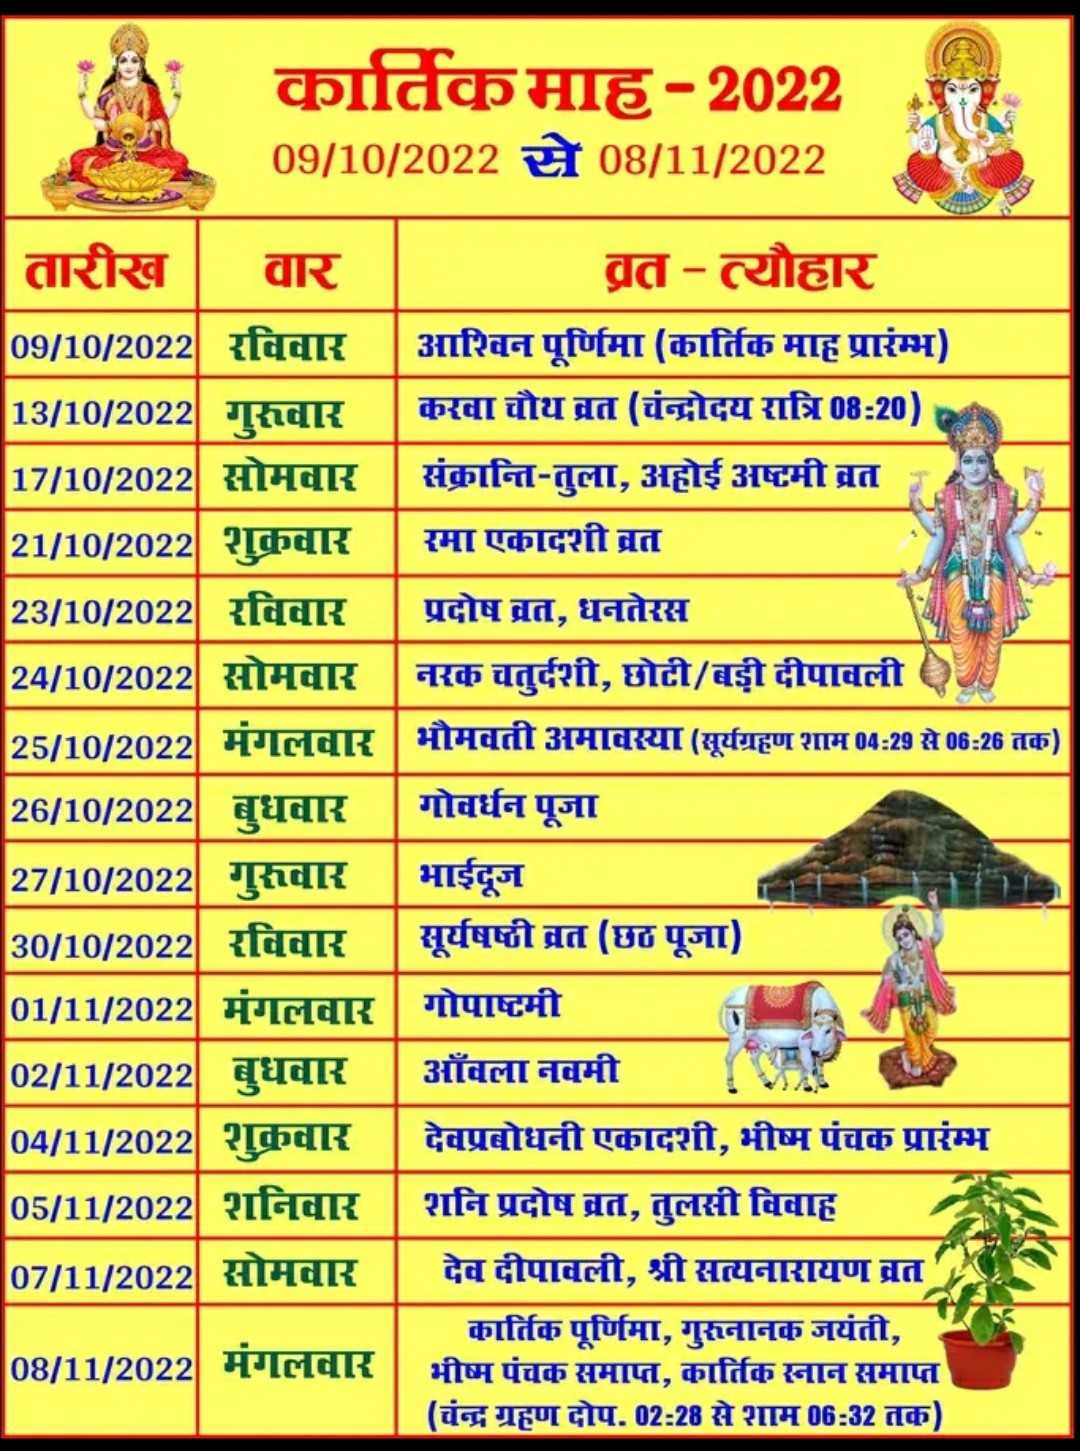 कार्तिक माह - 2022
09/10/2022 से 08/11/2022
तारीख वार व्रत - त्यौहार
09/10/2022 रविवार आश्विन पूर्णिमा (कार्तिक माह प्रारंम्भ)
13/10/2022 गुरुवार करवा चौथ व्रत (चंन्द्रोदय रात्रि 08:20)
17/10/2022 सोमवार संक्रान्ति-तुला, अहोई अष्टमी व्रत
21/10/2022 शुक्रवार रमा एकादशी व्रत
23/10/2022 रविवार प्रदोष व्रत, धनतेरस
24/10/2022 सोमवार नरक चतुर्दशी, छोटी/बड़ी दीपावली
25/10/2022 मंगलवार भौमवती अमावस्या (सूर्यग्रहण शाम 04:29 से 06:26 तक)
26/10/2022 बुधवार गोवर्धन पूजा
27/10/2022 गुरुवार भाईदूज
30/10/2022 रविवार सूर्यषष्ठी व्रत (छठ पूजा)
01/11/2022 मंगलवार गोपाष्टमी
02/11/2022 बुधवार आँवला नवमी
04/11/2022 शुक्रवार देवप्रबोधनी एकादशी, भीष्म पंचक प्रारंम्भ
05/11/2022 शनिवार शनि प्रदोष व्रत, तुलसी विवाह
07/11/2022 सोमवार देव दीपावली, श्री सत्यनारायण व्रत
08/11/2022 मंगलवार कार्तिक पूर्णिमा, गुरुनानक जयंती,
भीष्म पंचक समाप्त, कार्तिक स्नान समाप्त
(चंन्द्र ग्रहण दोप. 02:28 से शाम 06:32 तक)